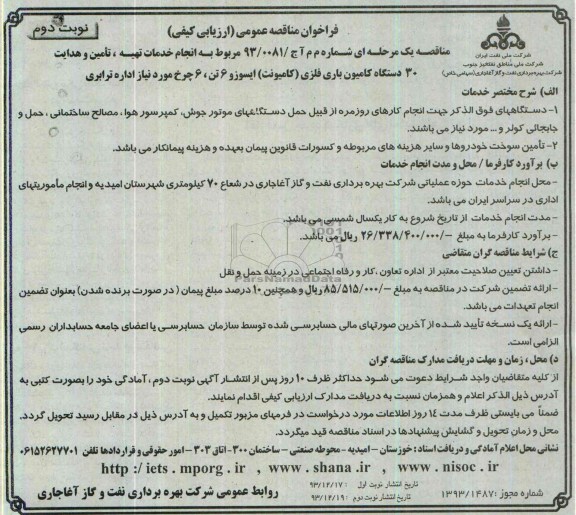 نوبت دوم
فراخوان مناقصه عمومی (ارزیابی کیفی)
شرکت ملی نفت ایران
شرکت ملی مناطق نفتخیز جنوب
شرکت بهره برداری نفت و گاز آغاجاری (سهامی خاص)
مناقصه یک مرحله ای شماره م م آ ج /۹۳/۰۰۸۱ مربوط به انجام خدمات تهیه ، تأمین و هدایت
۳۰ دستگاه کامیون باری فلزی (کامیونت) ایسوزو ۶ تن ، ۶ چرخ مورد نیاز اداره ترابری
الف) شرح مختصر خدمات
۱- دستگاههای فوق الذکر جهت انجام کارهای روزمره از قبیل حمل دستگاههای موتور جوش، کمپرسور هوا ، مصالح ساختمانی ، حمل و
جابجائی کولر و ... مورد نیاز می باشند.
۲- تأمین سوخت خودروها و سایر هزینه های مربوطه و کسورات قانونی پیمان بعهده و هزینه پیمانکار می باشد.
ب) برآورد کارفرما / محل و مدت انجام خدمات
-محل انجام خدمات حوزه عملیاتی شرکت بهره برداری نفت و گاز آغاجاری در شعاع ۷۰ کیلومتری شهرستان امیدیه و انجام مأموریتهای
اداری در سراسر ایران می باشد.
- مدت انجام خدمات از تاریخ شروع به کار یکسال شمسی می باشد.
- برآورد کارفرما به مبلغ -/۲۶/۳۳۸/۴۰۰/۰۰۰ ریال می باشد.
ج) شرایط مناقصه گران متقاضی
- داشتن تعیین صلاحیت معتبر از اداره تعاون ،کار و رفاه اجتماعی در زمینه حمل و نقل
-ارائه تضمین شرکت در مناقصه به مبلغ -/۸۵/۵۱۵/۰۰۰ ریال و همچنین ۱۰ درصد مبلغ پیمان ( در صورت برنده شدن) بعنوان تضمین
انجام تعهدات می باشد.
-ارائه یک نسخه تأیید شده از آخرین صورتهای مالی حسابرسی شده توسط سازمان حسابرسی یا اعضای جامعه حسابداران رسمی
الزامی است.
د) محل ، زمان و مهلت دریافت مدارک مناقصه گران
از کلیه متقاضیان واجد شرایط دعوت می شود حداکثر ظرف ۱۰ روز پس از انتشار آگهی نوبت دوم ، آمادگی خود را بصورت کتبی به
آدرس ذیل الذکر اعلام و همزمان نسبت به دریافت مدارک ارزیابی کیفی اقدام نمایند.
ضمناً می بایستی ظرف مدت ۱۴ روز اطلاعات مورد درخواست در فرمهای مزبور تکمیل و به آدرس ذیل در مقابل رسید تحویل گردد.
محل و زمان تحویل و گشایش پیشنهادها در اسناد مناقصه قید میگردد.
نشانی محل اعلام آمادگی و دریافت اسناد : خوزستان - امیدیه - محوطه صنعتی - ساختمان ۳۰۰-اتاق ۳۰۳ -امور حقوقی و قراردادها تلفن ۰۶۱۵۲۶۲۷۷۰۱
http :/ iets . mporg . ir , www . shana . ir , www . nisoc . ir
شماره مجوز :۱۳۹۳/۱۴۸۷
تاریخ انتشار نوبت اول : ۹۳/۱۲/۱۷
تاریخ انتشار نوبت دوم : ۹۳/۱۲/۱۹
روابط عمومی شرکت بهره برداری نفت و گاز آغاجاری
ParsNamadData